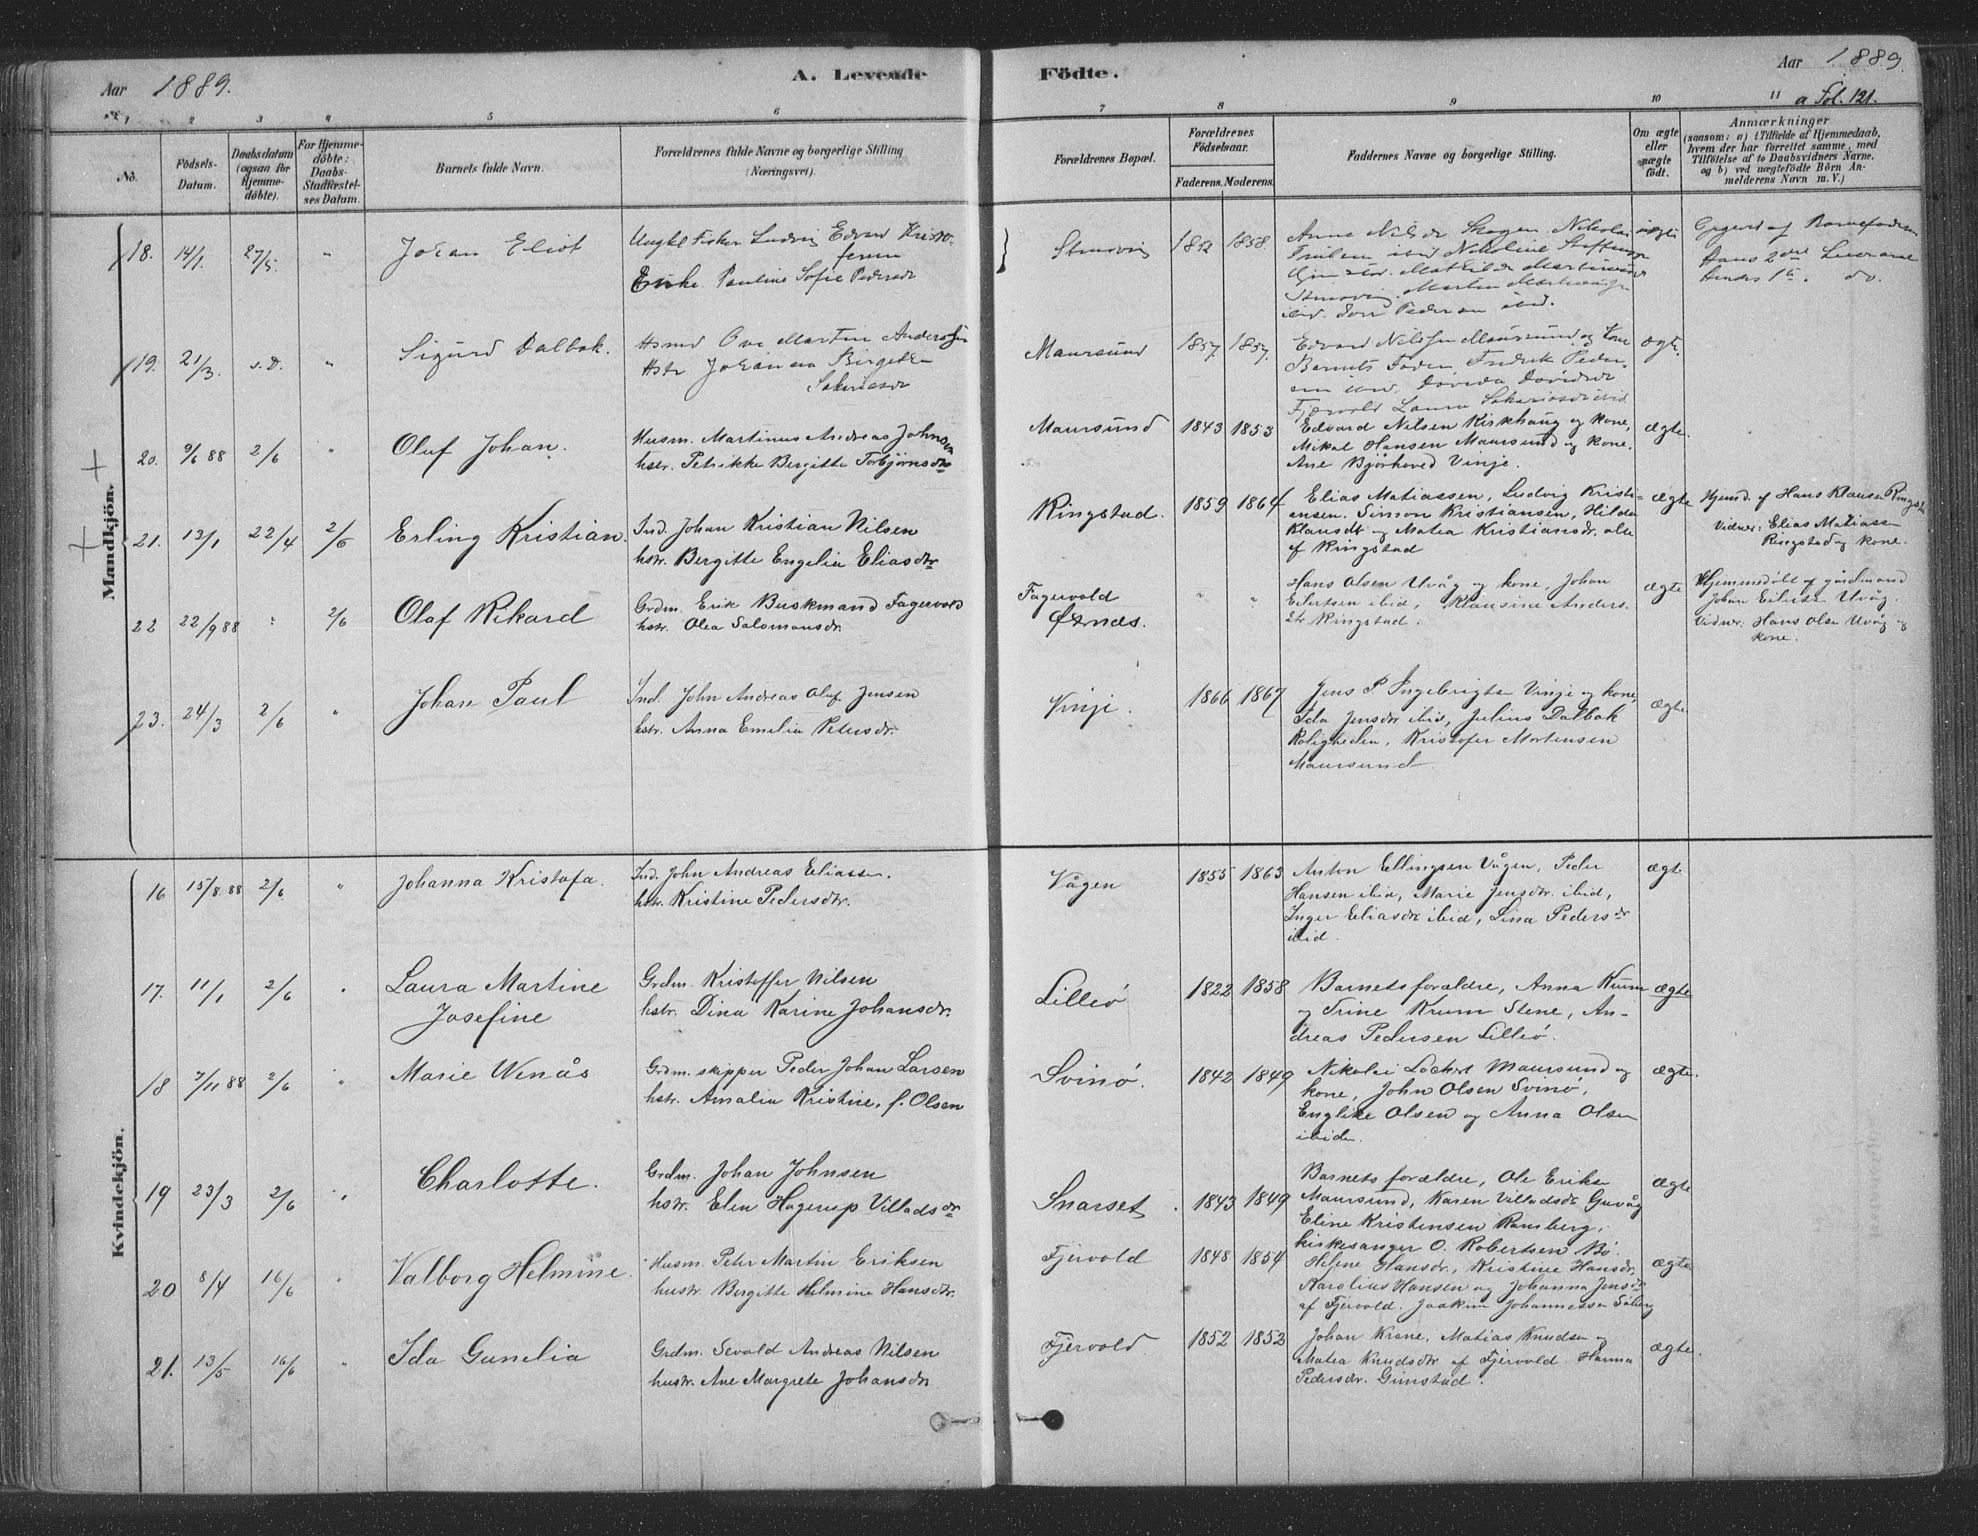 Aar 1889.
A. Levende
Födte.
Aar 1889.
a Fol. 121.
1 2 3 4 5 6 7 8 9 10 11
No.
Födsels-Datum.
Daabsdatum (ogsaa for Hjemme-döbte).
For Hjemme-döbte: Daabs-Stadfæstel-ses Datum.
Barnets fulde Navn.
Forældrenes fulde Navne og borgerlige Stilling (Næringsvei).
Forældrenes Bopæl.
Forældrenes Födselsaar.
Faderens. Moderens.
Faddernes Navne og borgerlige Stilling.
Om ægte eller uægte födt.
Anmærkninger
(saasom: a) i Tilfælde af Hjemmedaab,
hvem der har forrettet samme, med
Tilföielse af to Daabsvidners Navne.
og b) ved uægtefödte Börn An-
melderens Navn m. V.)
Mandkjön.
18. 14/1. 27/5. " Johan Eliot
Ungkl Fisker Ludvig Edvard Kristo-
fersen
Enke Pauline Sofie Pedersdr
1852 1858. uægte
19. 21/3. s.D. " Sigurd Dalbak.
Ove Morten Anderssen
Hstr Johanna Birgitte
Sakariasdr
Maursund 1857. 1857.
Edvard Nilssen Maursund og Kone
Barnets Fader, Fredrik Peder-
sen ibid. Dovida Davidsdr
Fjærvold Laura Sakariasdr ibid
ægte.
20. 9/6 88 2/6 " Oluf Johan.
Husm. Martinus Andreas Johnsen
hstr. Petrikke Bergitte Torbjørnsdr
Maursund 1843 1853
Edvard Nilsen Kirkhaug og kone,
Mikal Hansen Maursund og kone.
Ane Bjørhoved Vinje.
ægte.
21. 13/1 22/4 2/6 Erling Kristian.
Ind. Johan Kristian Nilsen
hstr. Bergitte Engelia Eliasdtr
Ringstad. 1859 1864
Elias Matiassen, Ludvig Kristi-
ansen. Simon Kristiansen, Hilda
Klausdtr og Matea Kristiansdr. alle
af Ringstad
ægte
Hjemd. af Hans Klausen Ringst.
Vidner: Elias Matiassen
Ringstad og kone.
22 22/9 88 " 2/6 Olaf Rikard
Grdm. Erik Buskmand Fagervold
hstr. Olea Salomonsdr.
Fagervold
Øxnæs. " "
Hans Olsen Uvåg og kone, Johan
Eilertsen ibid, Klausine Anders-
dtr Ringstad.
ægte
Hjemmedøbt af gårdmand
Johan Eilertsen Uvåg.
Vidner: Hans Olsen Uvåg og
kone.
23. 24/3 2/6 " Johan Paul
Ind. John Andreas Oluf Jensen
hstr. Anna Emelia Petersdr.
Vinje. 1866 1867
Jens P. Ingebrigtsen Vinje og kone,
Ida Jensdtr ibid, Julius Dalbak
Roligheden, Kristofer Mortensen
Maursund
ægte
Kvindekjön.
16 15/8 88 2/6 " Johanna Kristofa.
Ind. John Andreas Eliassen.
hstr. Kristine Pedersdtr.
Vågen 1855 1863
Anton Ellingsen Vågen, Peder
Hansen ibid, Marie Jensdtr. ibid,
Inger Eliasdtr ibid, Lina Pedersdr
ibid.
ægte
17. 11/1 2/6 " Laura Martine
Josefine
Grdm. Kristoffer Nilsen
hstr. Dina Karine Johansdr.
Lilleø 1822 1858
Barnets forældre, Anna Krum
og Trine Krum Stene, An-
dreas Pedersen Lilleø.
ægte
18 7/11 88 2/6 " Marie Wenås
Grdm. skipper Peder Johan Larsen
hstr. Amalia Kristine, f. Olsen
Svinø. 1842 1849
Nikolai Lockert Maursund og
kone, John Olsen Svinø,
Englike Olsen og Anna Olsen
ibidem.
ægte.
19 23/3 2/6 " Charlotte.
Grdm. Johan Johnsen
hstr. Elen Hagerup Villadsdr
Snarset. 1843 1849
Barnets forældre, Ole Eriksen
Maursund, Karen Villadsdr Guvåg
Eline Kristensen Ramberg,
kirkesanger O. Robertsen Bø.
ægte
20 8/4 16/6 " Valborg Helmine.
Husm. Peter Martin Eriksen
hustr. Bergitte Helmine Hansdtr.
Fjervold 1848 1854
Helene Hansdr, Kristine Hansdr,
Karolius Hansen og Johanna Jensdtr
af Fjervold. Joakim Johannessen Søberg
ægte
21. 13/5 16/6 " Ida Gunelia
Grdm. Sevald Andreas Nilsen
hustr. Ane Margrete Johansdr
Fjervold 1852 1853
Johan Krane, Matias Knudsen og
Matea Knudsdtr af Fjervold. Hanna
Pedersdr. Gimstad.
ægte.